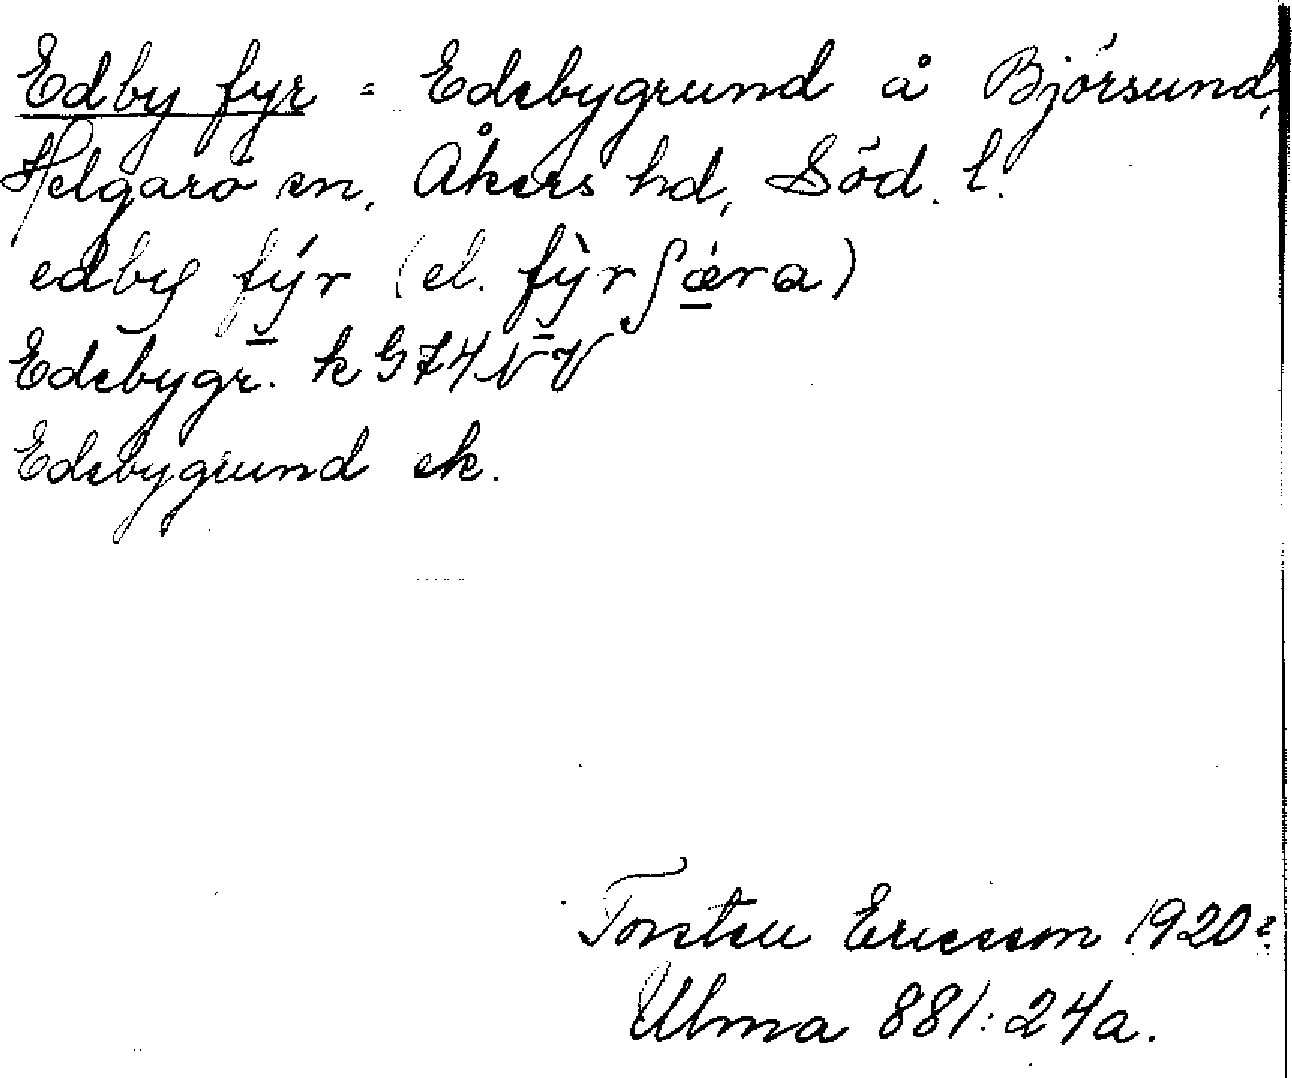 Edby fyr = Edsbygrund å Björsund,
Helgarö sn, Åkers hd, Söd. l.
edby fýr (el. fỳrʃæ̀ra)
Edsbygr. k G 74 NV
Edsbygrund ek.
Torsten Ericsson 1920
Ulma 881:24a.